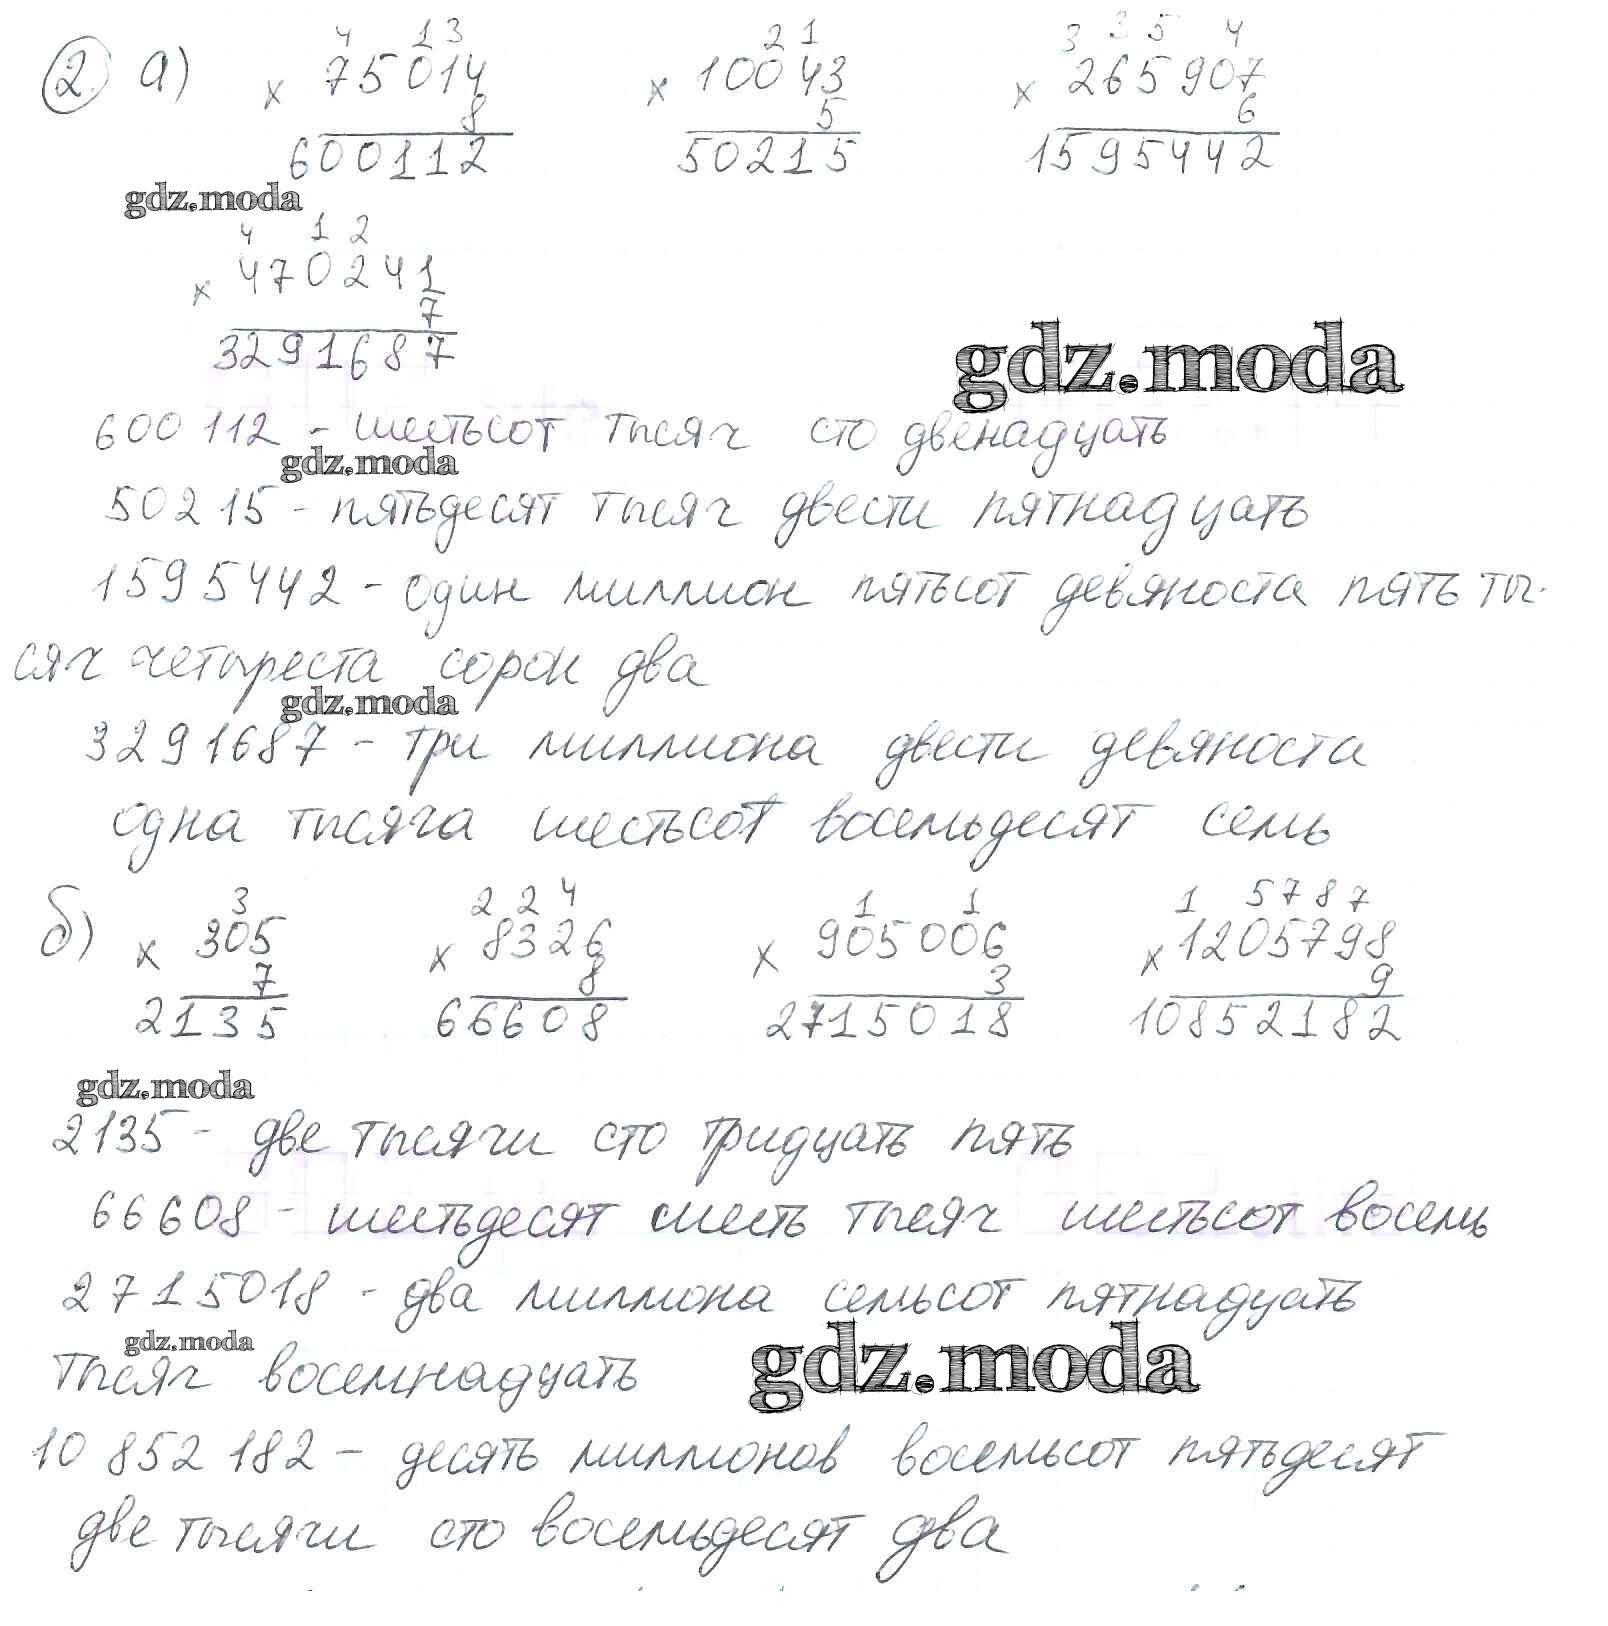 4 1 3 2 1 3 3 5 4
2. а) × 75014 × 10043 × 265907
8 5 6
600112 50215 1595442
gdz.moda
4 1 2
× 470241
7
3291687
gdz.moda
600 112 - шестьсот тысяч сто двенадцать
gdz.moda
50215 - пятьдесят тысяч двести пятнадцать
1595442 - один миллион пятьсот девяноста пять ты-
сяч четыреста сорок два
gdz.moda
3291687 - три миллиона двести девяноста
одна тысяча шестьсот восемьдесят семь
3 2 2 4 1 1 1 5 7 8 7
б) × 305 × 8326 × 905006 × 1205798
7 8 3 9
2135 66608 2715018 10852182
gdz.moda
2135 - две тысячи сто тридцать пять
66608 - шестьдесят шесть тысяч шестьсот восемь
2715018 - два миллиона семьсот пятнадцать
gdz.moda
тысяч восемнадцать
gdz.moda
10 852 182 - десять миллионов восемьсот пятьдесят
две тысячи сто восемьдесят два